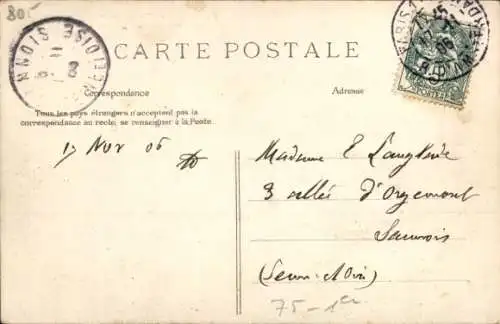 80
CARTE POSTALE
Correspondance
Adresse
Tous les pays étrangers n'acceptent pas la
correspondance au recto, se renseigner à la Poste.
17 Nov 06
Madame E Langlside
3 allée d'Orgemont
Sannois
(Seine-et-Oise)
75-1er